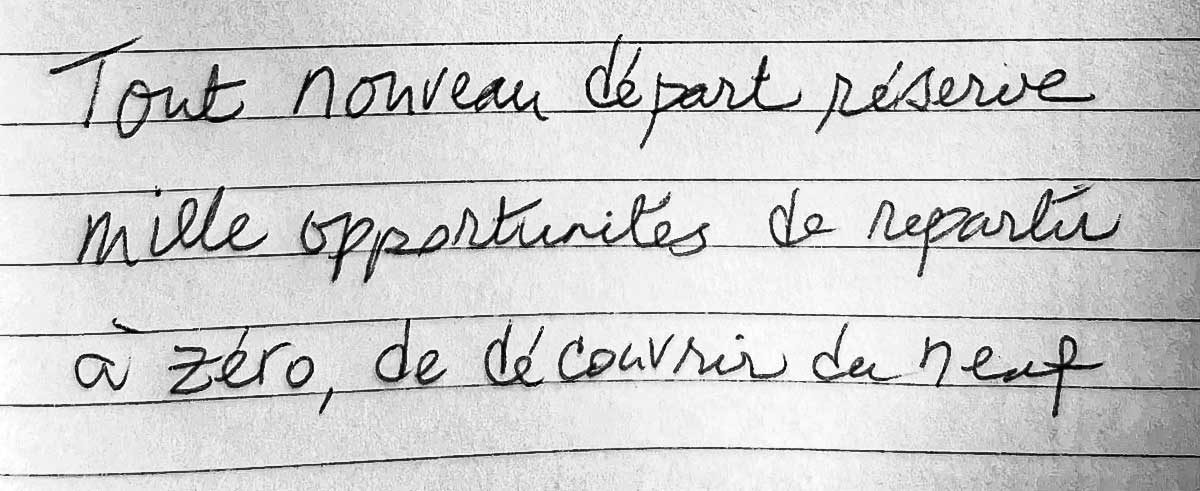 Tout nouveau départ réserve
mille opportunités de repartir
à zéro, de découvrir du neuf